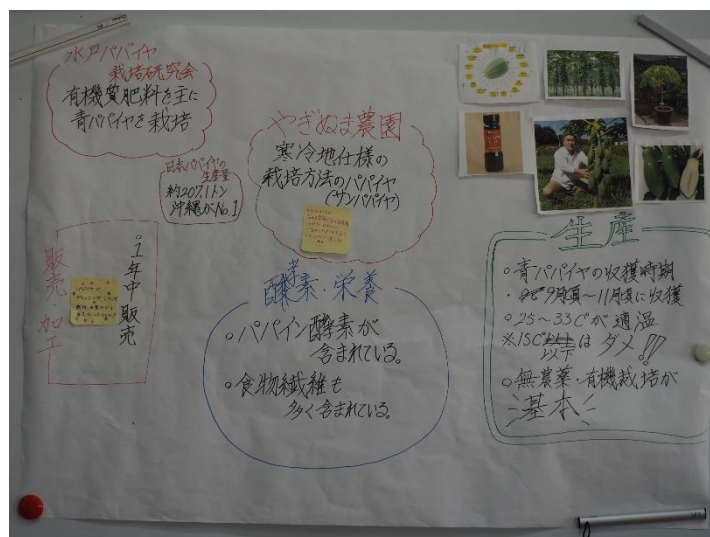 水戸パパイヤ
栽培研究会
有機質肥料を主に
青パパイヤを栽培
日本パパイヤの
生産量
約207.1トン
沖縄がNo.1
やぎぬま農園
寒冷地仕様の
栽培方法のパパイヤ
(サンパパイヤ)
・販売・加工
。1年中販売
酵素・栄養
○パパイン酵素が
含まれている。
○食物繊維も
多く含まれている。
生産
○青パパイヤの収穫時期
・9月頃~11月頃に収穫
○25~33℃が適温
※15℃以下はダメ!!!
○無農薬・有機栽培が
基本